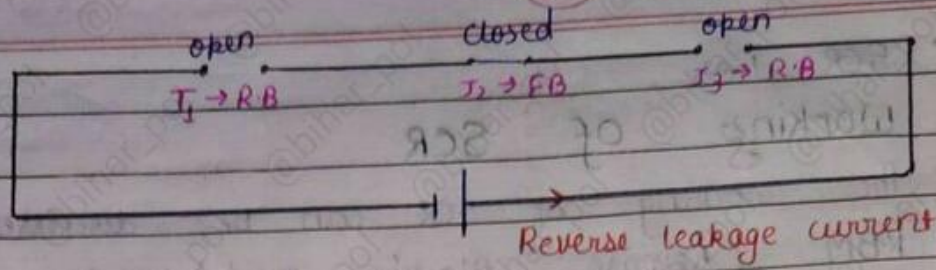 open closed open
J₁ → R.B J₂ → F.B J₃ → R.B
Reverse leakage current